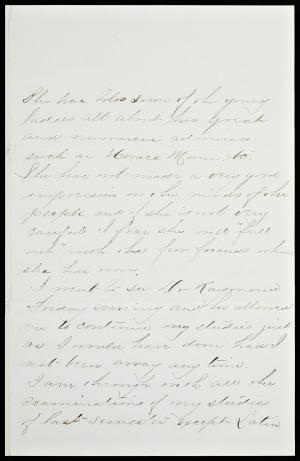 She has told some of the young
ladies all about her great
and numerous admirers
such as Horace Mann, &c.
She has not made a very good
impression on the minds of the
people, and if she is not very
careful I fear she will "fall
out" with the few friends whom
she has now.
I went to see Dr Raymond
Friday evening and he allowed
me to continue my studies just
as I would have done had I
not been away any time.
I am through with all the
examinations of my studies
of last semester except Latin